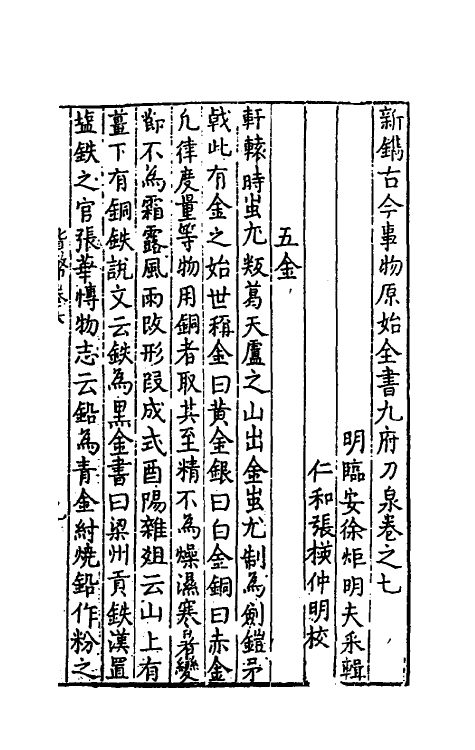 新鐫古今事物原始全書九府刀泉卷之七
明臨安徐炬明夫采輯
仁和張橫仲明校
五金
軒轅時蚩尤叛葛天盧之山出金蚩尤制為劍鎧矛
戟此有金之始世稱金曰黃金銀曰白金銅曰赤金
凢律度量等物用銅者取其至精不為燥濕寒暑變
節不為霜露風雨改形段成式酉陽雜俎云山上有
薑下有銅鉄說文云鉄為黒金書曰梁州貢鉄漢置
塩鉄之官張華博物志云鉛為青金紂燒鉛作粉之